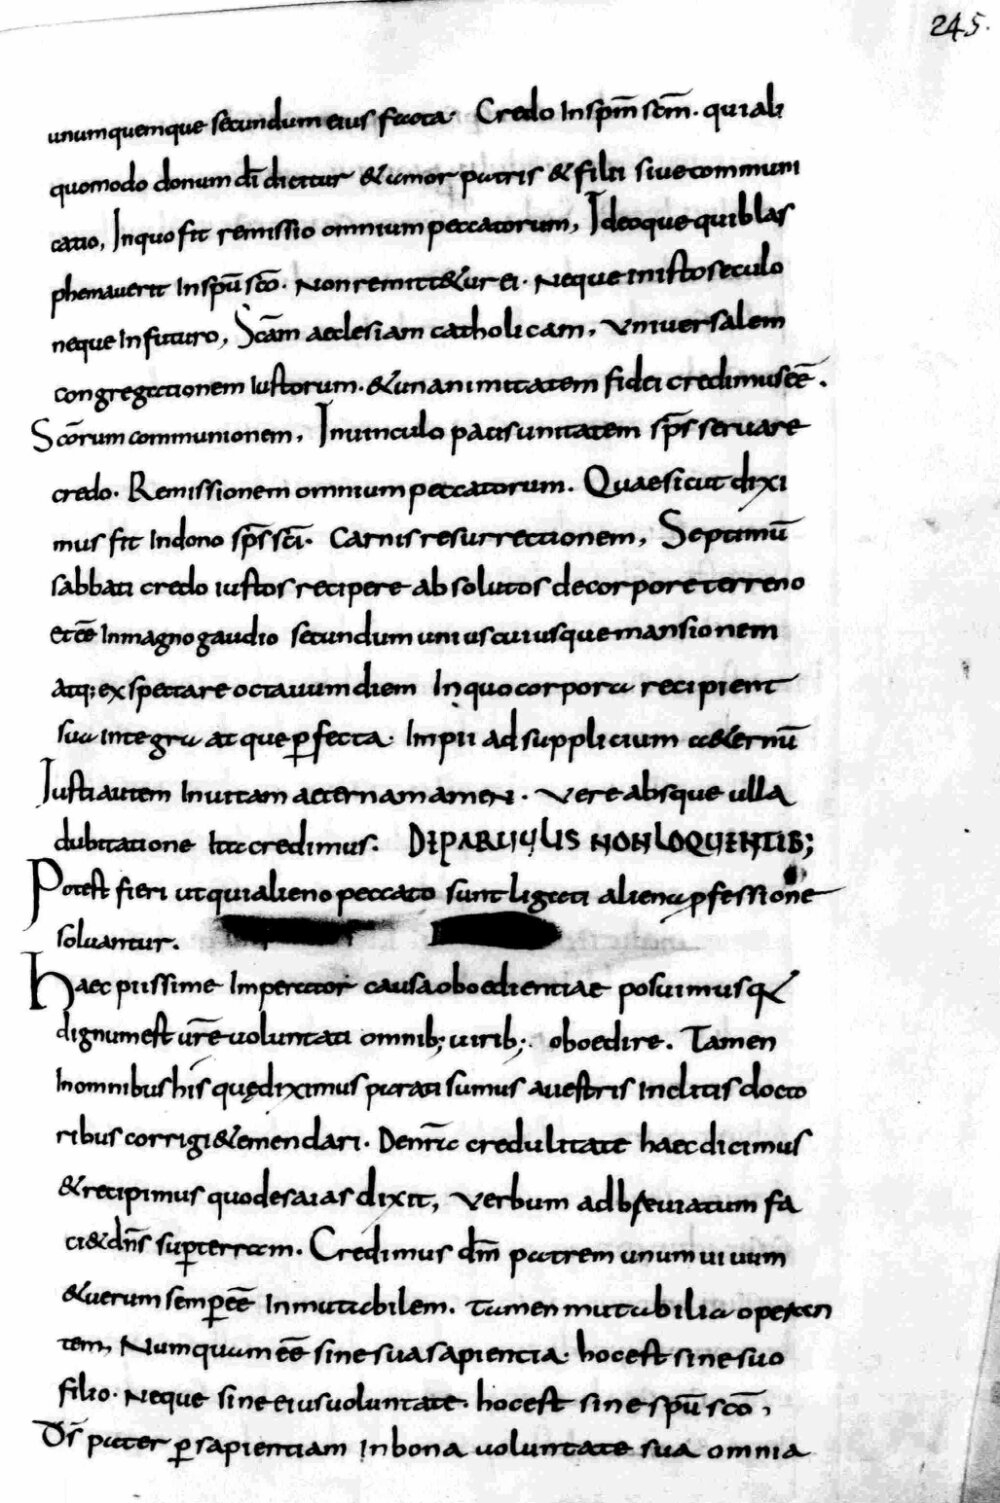 245.
unumquemque secundum eius facta. Credo In spm̄ scm̄. qui ali
quomodo donum dī dicitur & amor patris & filii sive communi
catio, In quo fit remissio omnium peccatorum, Ideoque qui blas
phemauerit In spū scō. Non remitt&ur ei. Neque in isto seculo
neque In futuro, Scām aecclesiam catholicam, Vniuersalem
congregationem Iustorum. & unanimitatem fidei credimus eē.
Scōrum communionem, In uinculo pacis unitatem sps̄ seruare
credo. Remissionem omnium peccatorum. Quae sicut dixi
mus fit In dono sps̄ scī. Carnis resurrectionem, Septimū
sabbati credo iustos recipere absolutos de corpore terreno
et eē In magno gaudio secundum uniuscuiusque mansionem
atq; exspectare octauum diem In quo corpora recipient
sua integra atque ꝑfecta. Impii ad supplicium a&ernū
Iusti autem In uitam aeternam amen. Vere absque ulla
dubitatione Ita credimus. DE PARUULIS NON LOQUENTIB;
Potest fieri ut qui alieno peccato sunt ligati aliena ꝓfessione
soluantur.
Haec piissime Imperator causa oboedientiae posuimus q
dignum est ūre uoluntati omnib; uirib; oboedire. Tamen
In omnibus his quę diximus parati sumus a uestris Inclitis docto
ribus corrigi & emendari. De nr̄ae credulitate haec dicimus
& recipimus quod esaias dixit, Verbum adbreuiatum fa
ci& dn̄s suꝑ terram. Credimus dm̄ patrem unum uiuum
& uerum semꝑ eē Inmutabilem. Tamen mutabilia operan
tem, Numquam eē sine sua sapientia. hoc est sine suo
filio. Neque sine eius uoluntate. hoc est sine spū scō,
Ds̄ pater ꝑ sapientiam In bona uoluntate sua omnia